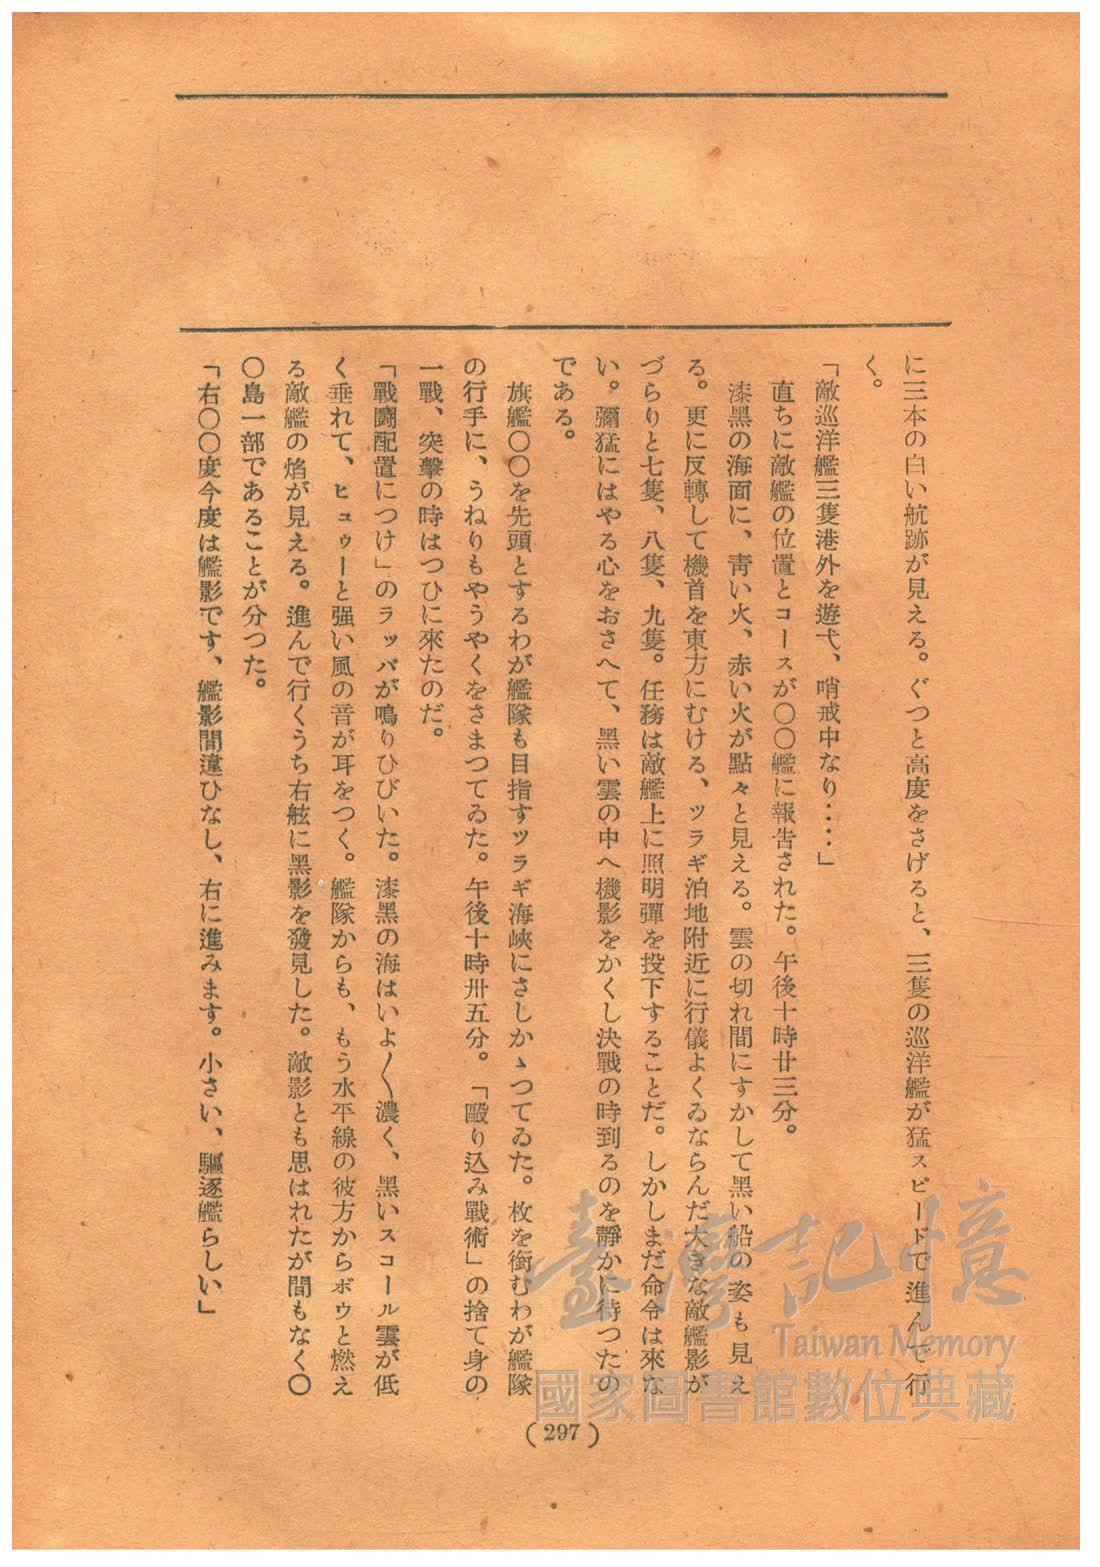 に三本の白い航跡が見える。ぐつと高度をさげると、三隻の巡洋艦が猛スピードで進んで行
く。
「敵巡洋艦三隻港外を遊弋、哨戒中なり‥‥」
直ちに敵艦の位置とコースが〇〇艦に報告された。午後十時廿三分。
漆黑の海面に、靑い火、赤い火が點々と見える。雲の切れ間にすかして黑い船の姿も見え
る。更に反轉して機首を東方にむける、ツラギ泊地附近に行儀よくゐならんだ大きな敵艦影が
づらりと七隻、八隻、九隻。任務は敵艦上に照明彈を投下することだ。しかしまだ命令は來な
い。彌猛にはやる心をおさへて、黑い雲の中へ機影をかくし決戰の時到るのを靜かに待つたの
である。
旗艦〇〇を先頭とするわが艦隊も目指すツラギ海峽にさしかゝつてゐた。枚を銜むわが艦隊
の行手に、うねりもやうやくをさまつてゐた。午後十時卅五分。「毆り込み戰術」の捨て身の
一戰、突擊の時はつひに來たのだ。
「戰鬪配置につけ」のラッパが鳴りひびいた。漆黑の海はいよ〱濃く、黑いスコール雲が低
く垂れて、ヒューと强い風の音が耳をつく。艦隊からも、もう水平線の彼方からボウと燃え
る敵艦の焰が見える。進んで行くうち右舷に黑影を發見した。敵影とも思はれたが間もなく〇
〇島一部であることが分つた。
「右〇〇度今度は艦影です、艦影間違ひなし、右に進みます。小さい、驅逐艦らしい」
(297)
臺灣記憶
Taiwan Memory
國家圖書館數位典藏